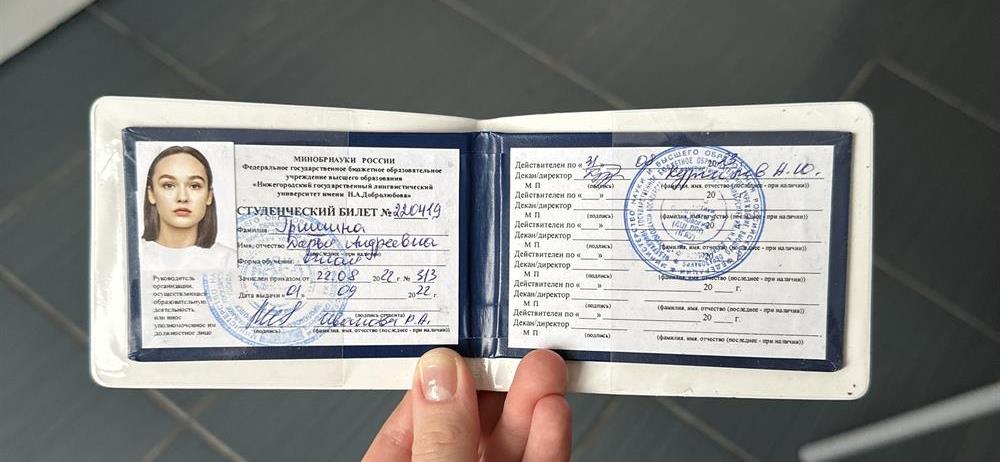 МИНОБРНАУКИ РОССИИ
Федеральное государственное бюджетное образовательное
учреждение высшего образования
«Нижегородский государственный лингвистический
университет имени Н.А.Добролюбова»
СТУДЕНЧЕСКИЙ БИЛЕТ № 220419
Фамилия Гришина
Имя, отчество Дарья Андреевна
(последнее - при наличии)
Форма обучения очная
Зачислен приказом от 22.08 2022 г. № 313
Дата выдачи « 01 » 09 2022 г.
(подпись студента)
Иванова Р.А.
(подпись) (фамилия, имя, отчество (последнее - при наличии))
Руководитель
организации,
осуществляющей
образовательную
деятельность,
или иное
уполномоченное им
должностное лицо
Действителен по « 31 » 08 2023
Декан/директор А.Ю.
М П (подпись) (фамилия, имя, отчество (последнее - при наличии))
Действителен по « » 20
Декан/директор
М П (подпись) (фамилия, имя, отчество (последнее - при наличии))
Действителен по « »
Декан/директор
М П (подпись) (фамилия, имя, отчество (последнее - при наличии))
Действителен по « » 20
Декан/директор
М П (подпись) (фамилия, имя, отчество (последнее - при наличии))
Действителен по « » 20 г.
Декан/директор
М П (подпись) (фамилия, имя, отчество (последнее - при наличии))
Действителен по « » 20 г.
Декан/директор
М П (подпись) (фамилия, имя, отчество (последнее - при наличии))